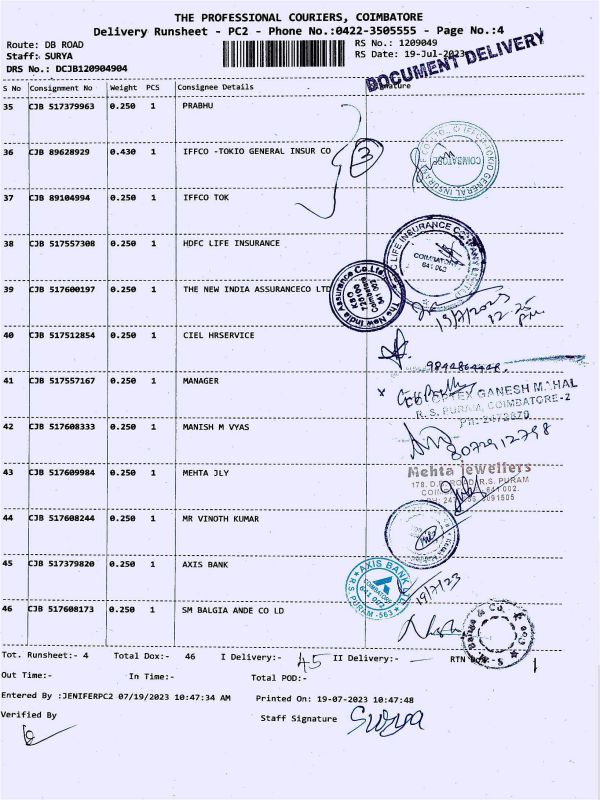 THE PROFESSIONAL COURIERS, COIMBATORE
Delivery Runsheet - PC2 - Phone No.:0422-3505555 - Page No.:4
Route: DB ROAD RS No.: 1209049
Staff: SURYA RS Date: 19-Jul-2023
DRS No.: DCJB120904904
DOCUMENT DELIVERY
S No Consignment No Weight PCS Consignee Details Signature
35 CJB 517379963 0.250 1 PRABHU
36 CJB 89628929 0.430 1 IFFCO -TOKIO GENERAL INSUR CO
3
COIMBATORE
37 CJB 89104994 0.250 1 IFFCO TOK
38 CJB 517557308 0.250 1 HDFC LIFE INSURANCE
LIFE INSURANCE COMPANY
COIMBATORE
641 002
39 CJB 517600197 0.250 1 THE NEW INDIA ASSURANCECO LTD
The New India Assurance Co. Ltd.
720100
Coimbatore
641 002
19/7/2023
12-25
pm
40 CJB 517512854 0.250 1 CIEL HRSERVICE
9842864428
41 CJB 517557167 0.250 1 MANAGER
GANESH MAHAL
R. S. PURAM, COIMBATORE-2
PH: 2472670
42 CJB 517608333 0.250 1 MANISH M VYAS
8072912798
43 CJB 517609984 0.250 1 MEHTA JLY
Mehta jewellers
178, D.B. ROAD, R.S. PURAM
641 002.
2091505
44 CJB 517608244 0.250 1 MR VINOTH KUMAR
45 CJB 517379820 0.250 1 AXIS BANK
AXIS BANK
COIMBATORE
641 002
R.S. PURAM -563
19/7/23
46 CJB 517608173 0.250 1 SM BALGIA ANDE CO LD
Tot. Runsheet:- 4 Total Dox:- 46 I Delivery:- 45 II Delivery:- RTN Dox:- 1
Out Time:- In Time:- Total POD:-
Entered By :JENIFERPC2 07/19/2023 10:47:34 AM Printed On: 19-07-2023 10:47:48
Verified By Staff Signature Surya